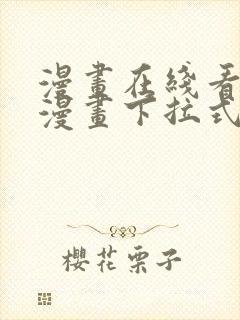 漫畫在綫看
漫畫下拉式
櫻花栗子